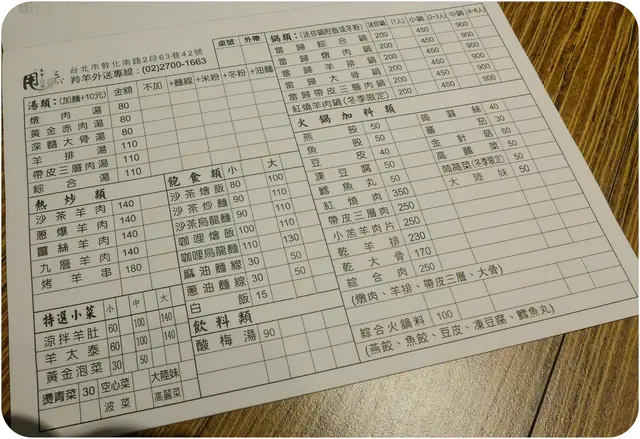 甩
台北市敦化南路2段63巷42號
羚羊外送專線：(02)2700-1663
桌號 外帶
湯類：(加麵+10元) 金額 不加 +麵線 +米粉 +冬粉 +油麵
燉肉湯 80
黃金赤肉湯 80
深髓大骨湯 80
羊排湯 110
帶皮三層肉湯 110
綜合湯 110
熱炒類
沙茶羊肉 140
蔥爆羊肉 140
薑絲羊肉 140
九層羊肉 140
烤羊串 180
特選小菜 小 中 大
涼拌羊肚 60 100 140
羊太泰 60 100 140
黃金泡菜 30 50
燙青菜 30 空心菜 大陸妹
菠菜 高麗菜
飽食類 小 大
沙茶燴飯 80 100
沙茶炒麵 90 110
沙茶烏龍麵 90 110
咖哩燴飯 100 110
咖哩烏龍麵 110 130
麻油麵線 30 50
蔥油麵線 30 50
白飯 15
飲料類
酸梅湯 90
鍋類：(迷你鍋附飯或冬粉) 迷你鍋(1人) 小鍋(2-3人) 中鍋(4-6人)
當歸綜合鍋 200 450 900
當歸燉肉鍋 200 450 900
當歸羊排鍋 200 450 900
當歸大骨鍋 200 450 900
當歸帶皮三層肉鍋 200 450 900
紅燒羊肉鍋(冬季限定) 200 450 900
火鍋加料類
燕餃 50
魚餃 50
豆皮 40
凍豆腐 50
鱈魚丸 50
紅燒肉 350
帶皮三層肉 250
小羔羊肉片 250
乾羊排 230
乾大骨 170
綜合肉 250
(燉肉、羊排、帶皮三層、大骨)
綜合火鍋料 100
(燕餃、魚餃、豆皮、凍豆腐、鱈魚丸)
蒟蒻絲 40
蕃茄 30
金針菇 50
高麗菜 50
茼蒿菜(冬季限定) 50
大陸妹 50